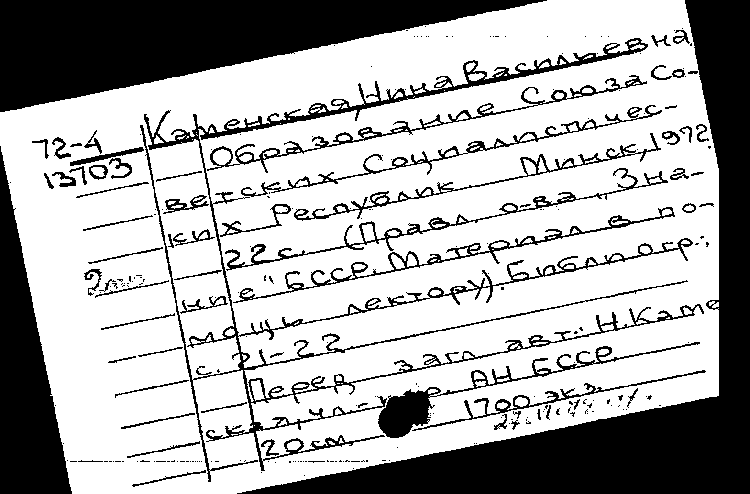 72-4 Каменская, Нина Васильевна
13703 Образование Союза Со-
ветских Социалистичес-
ких Республик. Минск, 1972.
22 с. (Правл. о-ва „Зна-
ние" БССР. Материал в по-
мощь лектору). Библиогр.:
с. 21-22.
Перед загл. авт.: Н. Каме
ская, чл.-кор. АН БССР.
20 см. 1700 экз.